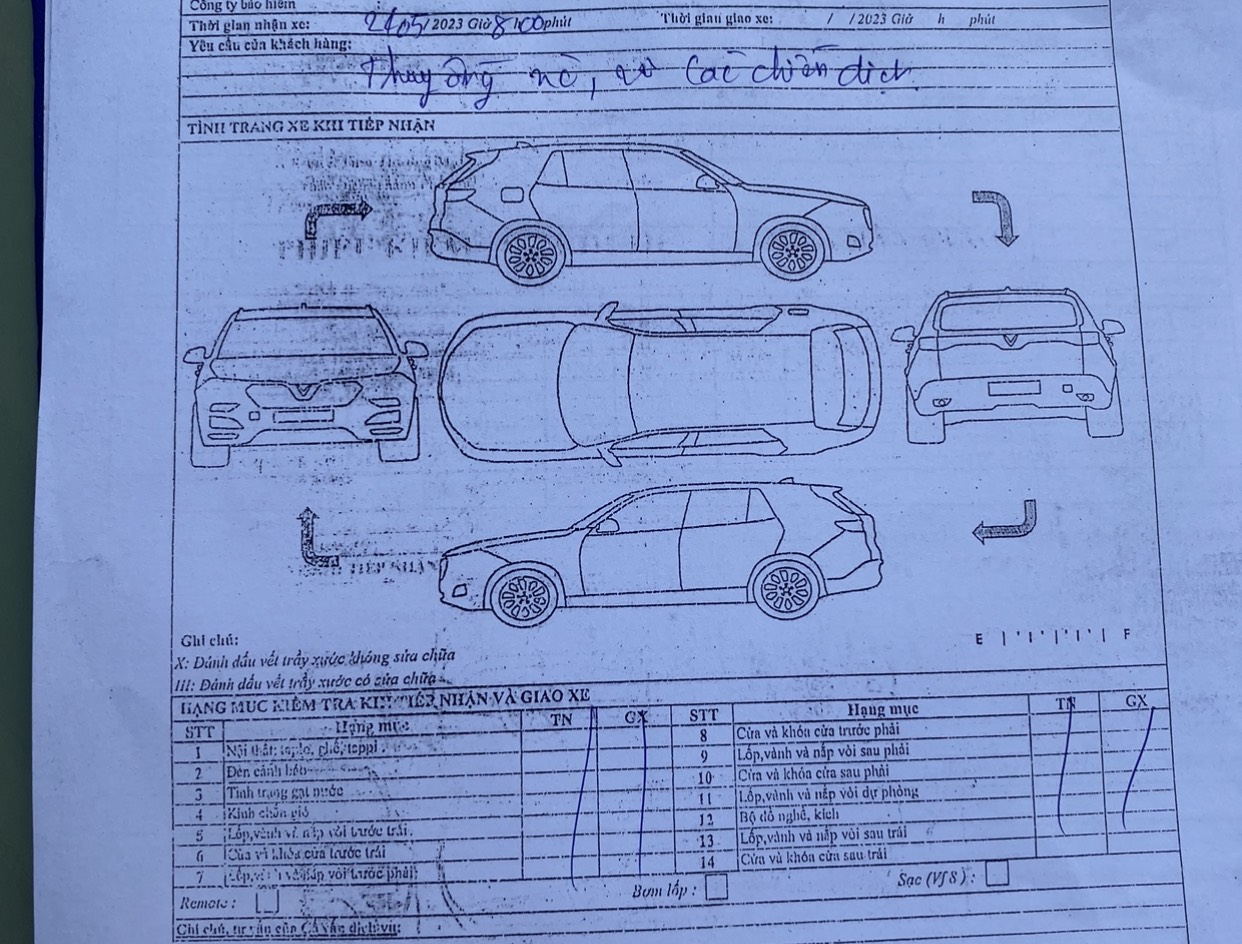 Công ty bảo hiểm
Thời gian nhận xe: /2023 Giờ 8 h 00 phút Thời gian giao xe: / /2023 Giờ h phút
Yêu cầu của khách hàng:
các chiến dịch
TÌNH TRẠNG XE KHI TIẾP NHẬN
TIẾP NHẬN
Ghi chú:
E F
X: Đánh dấu vết trầy xước không sửa chữa
III: Đánh dấu vết trầy xước có sửa chữa
HẠNG MỤC KIỂM TRA KHI TIẾP NHẬN VÀ GIAO XE
STT Hạng mục TN GX STT Hạng mục TN GX
1 Nội thất: taplo, ghế, tappi 8 Cửa và khóa cửa trước phải
2 Đèn cảnh báo 9 Lốp,vành và nắp vòi sau phải
3 Tình trạng gạt nước 10 Cửa và khóa cửa sau phải
4 Kính chắn gió 11 Lốp,vành và nắp vòi dự phòng
5 Lốp,vành và nắp vòi trước trái 12 Bộ đồ nghề, kích
6 Cửa và khóa cửa trước trái 13 Lốp,vành và nắp vòi sau trái
7 Lốp,vành và nắp vòi trước phải 14 Cửa và khóa cửa sau trái
Remote : Bơm lốp : Sạc (Vf8) :
Ghi chú, tư vấn của Cố vấn dịch vụ: